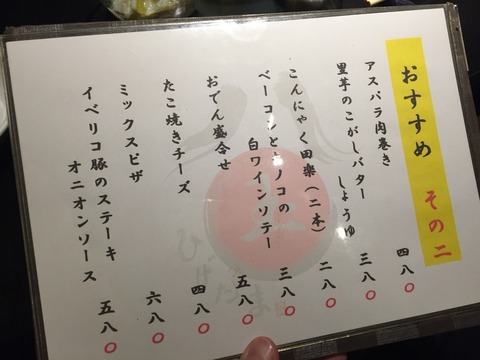 おすすめ その二
アスパラ肉巻き 四八〇
里芋のこがしバター
しょうゆ 三八〇
こんにゃく田楽(二本) 二八〇
ベーコンとキノコの
白ワインソテー 三八〇
おでん盛合せ 五八〇
たこ焼きチーズ 四八〇
ミックスピザ 六八〇
イベリコ豚のステーキ
オニオンソース 五八〇